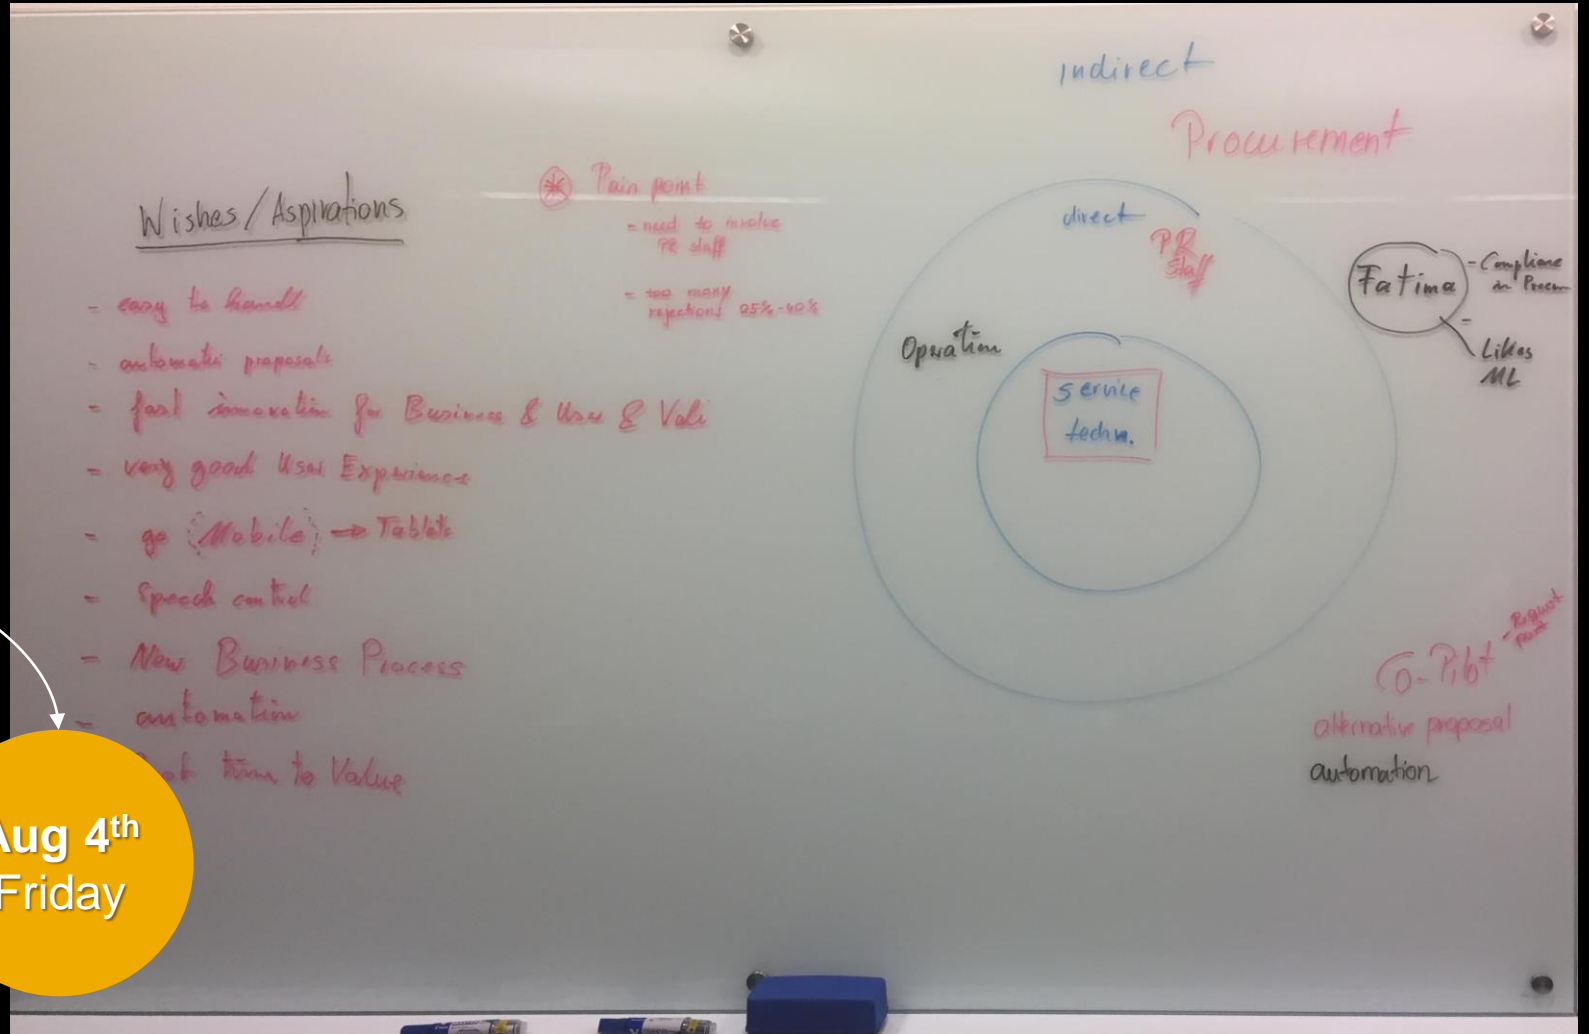 Wishes/Aspirations
- easy to handl
- automatic proposals
- fast innovation for Business & User & Vali
- very good User Experience
- go (Mobile) → Tablets
- Speech control
- New Business Process
- automation
time to Value
Pain point
- need to involve
PR staff
- too many
rejections 25%-40%
indirect
Procurement
direct
PR
Staff
Operation
service
techn.
Fatima
- Compliance
in Procum
-
Likes
ML
Co-Pilot
- Request
part
alternative proposal
automation
Aug 4th
Friday